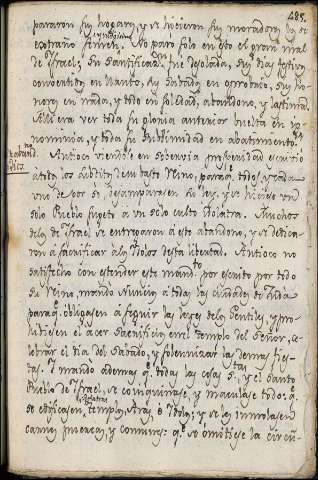 485.
pararon sus hogares, y se hicieron sus moradas los de
extraño
No paro solo en esto el gran mal
de Israel; su Santificacion fue desolada, sus dias festivos
convertidos en llanto, sus Sabados en oprobrio, sus ho-
nores en nada, y todo en soledad, abandono, y lastima.
Alli era ver toda su gloria anterior buelta en ig-
nominia, y toda su sublimidad en abatimiento.
Antioco viendose en sobervia prosperidad escrivió
a todos los subditos de su basto Reino, paraq. todos, y cada
uno de por si desamparasen su ley, y se hiciese un
solo Pueblo sugeto a un solo culto Idolatra. Muchos
de los de Israel se entregaron a este abandono, y se dedica-
ron a sacrificar a los Idolos desta libertad. Antioco no
satisfecho con estender este mand.to por escrito por todo
su Reino, mandó Nuncios a todas las ciudades de Juda
paraq. obligasen a seguir las leyes de los Gentiles, y pro-
hibiesen el acer Sacrificios en el templo del Señor, ce-
lebrar el dia del Sabado, y solemnizar las demas fies-
tas. Y mandó ademas q.e todas las cosas S.tas, y el Santo
Pueblo de Israel, se coinquinase, y maculase todo: q.e
se edificasen templos, Aras, e Idolos; y se les inmolasen
carnes puercas, y comunes: q.e se omitiese la circun-